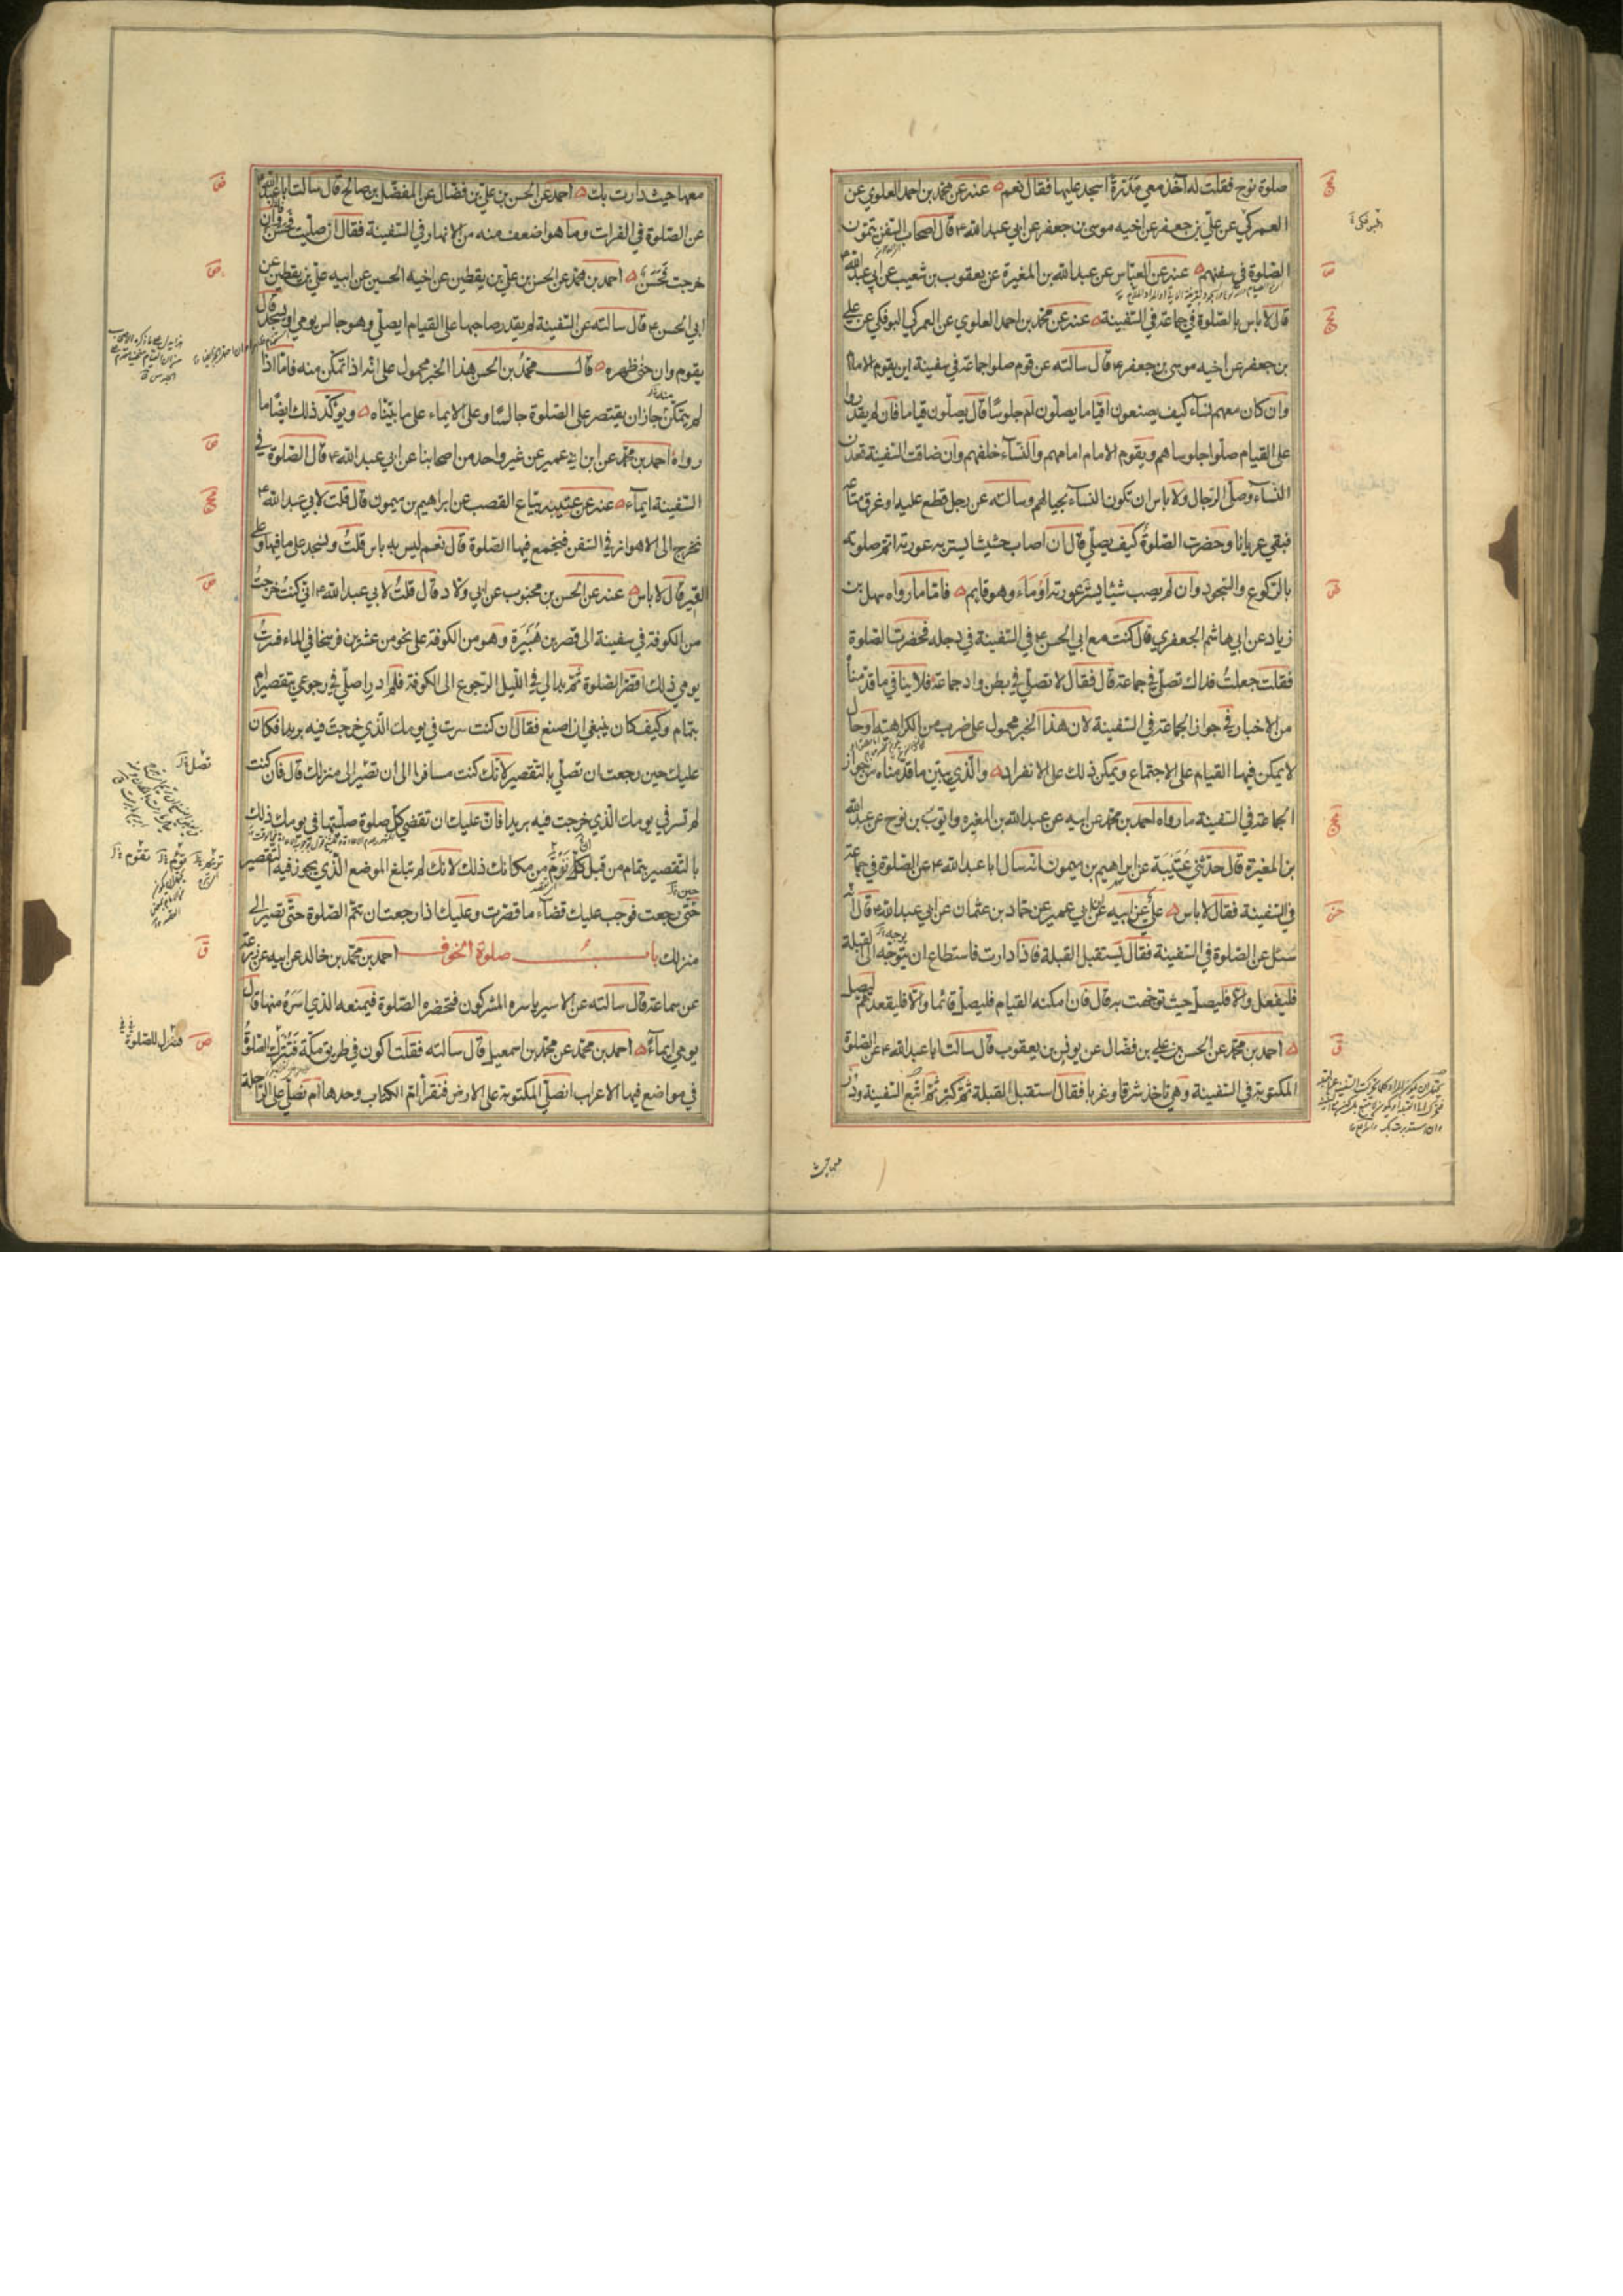 صلوة نوح فقلت له آخذ معي مدرة اسجد عليها فقال نعم عنه عن محمد بن احمد العلوي عن
العمركي عن علي بن جعفر عن اخيه موسى بن جعفر عن ابي عبد الله ع قال اصحاب السفن يتمون
الصلوة في سفنهم عنه عن العباس عن عبد الله بن المغيرة عن يعقوب بن شعيب عن ابي عبد الله ع
قال لا باس بالصلوة في جماعة في السفينة عنه عن محمد بن احمد العلوي عن العمركي البوفكي عن علي
بن جعفر عن اخيه موسى بن جعفر ع قال سالته عن قوم صلوا جماعة في سفينة اين يقوم الامام
وان كان معهم نساء كيف يصنعون اقياما يصلون ام جلوسا قال يصلون قياما فان لم يقدروا
على القيام صلوا جلوسا هم ويقوم الامام امامهم والنساء خلفهم وان ضاقت السفينة قعدن
النساء وصلى الرجال ولا باس ان تكون النساء بحيالهم وسالته عن رجل قطع عليه او غرق متاعه
فبقي عريانا وحضرت الصلوة كيف يصلي قال ان اصاب حشيشا يستر به عورته اتم صلوته
بالركوع والسجود وان لم يصب شيئا يستر عورته اومأ وهو قايم فاما ما رواه سهل بن
زياد عن ابي هاشم الجعفري قال كنت مع ابي الحسن ع في السفينة في دجله فحضرت الصلوة
فقلت جعلت فداك نصلي في جماعة قال فقال لا تصلي في بطن واد جماعة فلا ينافي ما قدمناه
من الاخبار في جواز الجماعة في السفينة لان هذا الخبر محمول على ضرب من الكراهية او حال
لا يمكن فيها القيام على الاجتماع ويمكن ذلك على الانفراد والذي يبين ما قدمناه من جواز
الجماعة في السفينة ما رواه احمد بن محمد عن ابيه عن عبد الله بن المغيره وايوب بن نوح عن عبد الله
بن المغيرة قال حدثني عتيبة عن ابراهيم بن ميمون انه سال ابا عبد الله ع عن الصلوة في جماعة
في السفينة فقال لا باس علي عن ابيه عن ابن ابي عمير عن حماد بن عثمان عن ابي عبد الله ع قال انه
سئل عن الصلوة في السفينة فقال يستقبل القبلة فاذا دارت فاستطاع ان يتوجه الى القبلة
فليفعل والا فليصل حيث توجهت به قال فان امكنه القيام فليصل قائما والا فليقعد ثم ليصل
احمد بن محمد عن الحسن بن علي بن فضال عن يونس بن يعقوب قال سالت ابا عبد الله ع عن الصلوة
المكتوبة في السفينة وهي تاخذ شرقا وغربا فقال استقبل القبلة ثم كبر ثم اتبع السفينة ودر
معها حيث دارت بك احمد عن الحسن بن علي بن فضال عن المفضل بن صالح قال سالت ابا عبد الله ع
عن الصلوة في الفرات وما هو اضعف منه من الانهار في السفينة فقال ان صليت فحسن وان
خرجت فحسن احمد بن محمد عن الحسن بن علي بن يقطين عن اخيه الحسين عن ابيه علي بن يقطين عن
ابي الحسن ع قال سالته عن السفينة لم يقدر صاحبها على القيام ايصلي وهو جالس يومي او يسجد قال
يقوم وان حنى ظهره قال محمد بن الحسن هذا الخبر محمول على انه اذا تمكن منه فاما اذا
لم يتمكن جاز ان يقتصر على الصلوة جالسا وعلى الايماء على ما بيناه ويؤكد ذلك ايضا ما
رواه احمد بن محمد عن ابن ابي عمير عن غير واحد من اصحابنا عن ابي عبد الله ع قال الصلوة في
السفينة ايماء عنه عن عتيبة بياع القصب عن ابراهيم بن ميمون قال قلت لابي عبد الله ع
نخرج الى الاهواز في السفن فنجمع فيها الصلوة قال نعم ليس به باس قلت ونسجد على ما فيها وعلى
القير قال لا باس عنه عن الحسن بن محبوب عن ابي ولاد قال قلت لابي عبد الله ع اني كنت خرجت
من الكوفة في سفينة الى قصر بن هبيرة وهو من الكوفة على نحو من عشرين فرسخا في الماء فسرت
يومي ذلك اقصر الصلوة ثم بدا لي في الليل الرجوع الى الكوفة فلم ادر اصلي في رجوعي بتقصير ام
بتمام وكيف كان ينبغي ان اصنع فقال ان كنت سرت في يومك الذي خرجت فيه بريدا فكان
عليك حين رجعت ان تصلي بالتقصير لانك كنت مسافرا الى ان تصير الى منزلك قال فان كنت
لم تسر في يومك الذي خرجت فيه بريدا فان عليك ان تقضي كل صلوة صليتها في يومك ذلك
بالتقصير بتمام من قبل ان تؤم من مكانك ذلك لانك لم تبلغ الموضع الذي يجوز فيه التقصير
حتى رجعت فوجب عليك قضاء ما قصرت وعليك اذا رجعت ان تتم الصلوة حتى تصير الى
منزلك باب صلوة الخوف احمد بن محمد بن خالد عن ابيه عن زرعة
عن سماعة قال سالته عن الاسير ياسره المشركون فتحضره الصلوة فيمنعه الذي اسره منها قال
يومي ايماء احمد بن محمد عن محمد بن اسمعيل قال سالته فقلت اكون في طريق مكة فننزل للصلوة
في مواضع فيها الاعراب انصلي المكتوبة على الارض فنقرأ ام الكتاب وحدها ام نصلي على الراحلة